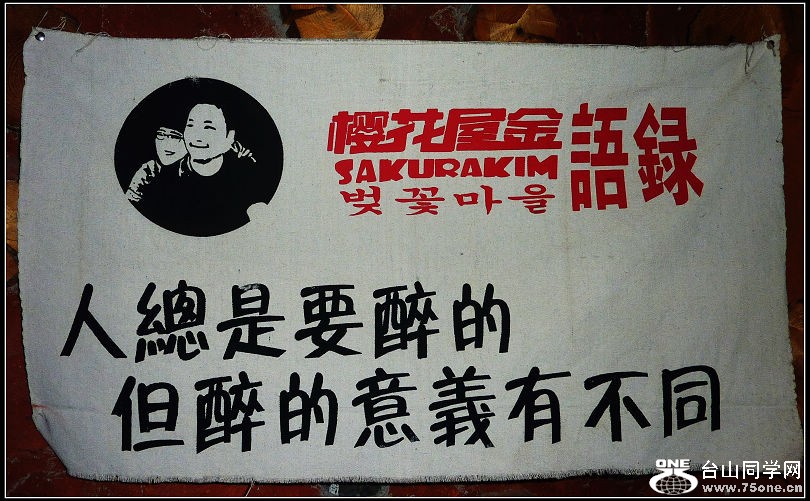 樱花屋金
SAKURAKIM
벚꽃마을
語録
人總是要醉的
但醉的意義有不同
ONE
台山同学网
www.75one.cn